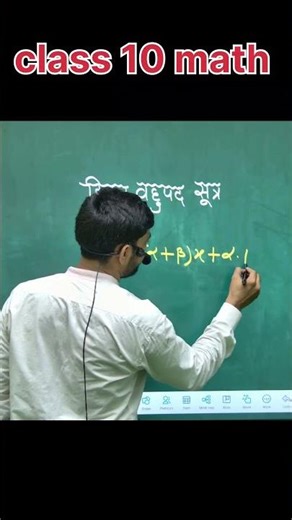 class 10 math
बहुपद सूत्र
α+β)x+α.